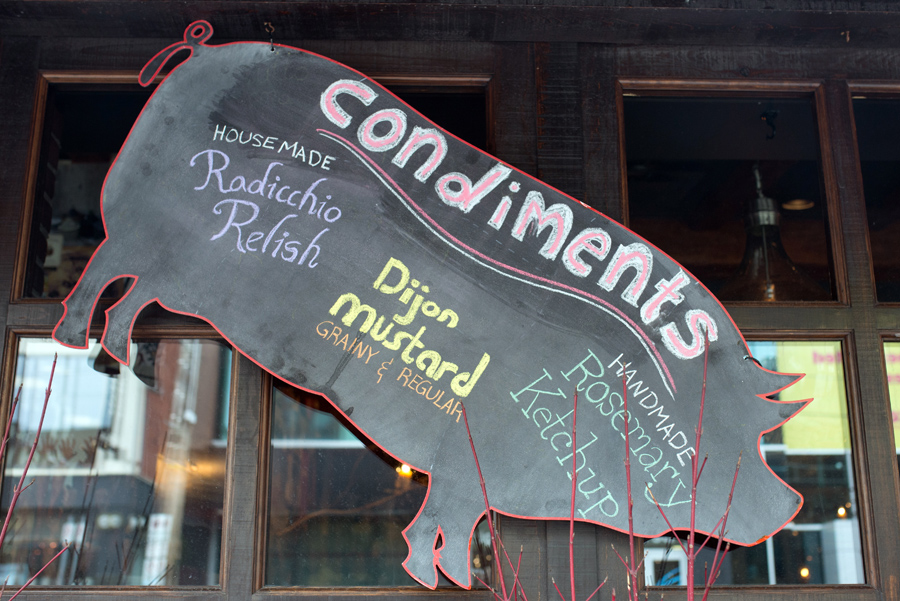 condiments
HOUSEMADE
Radicchio
Relish
Dijon
mustard
GRAINY & REGULAR
HANDMADE
Rosemary
Ketchup